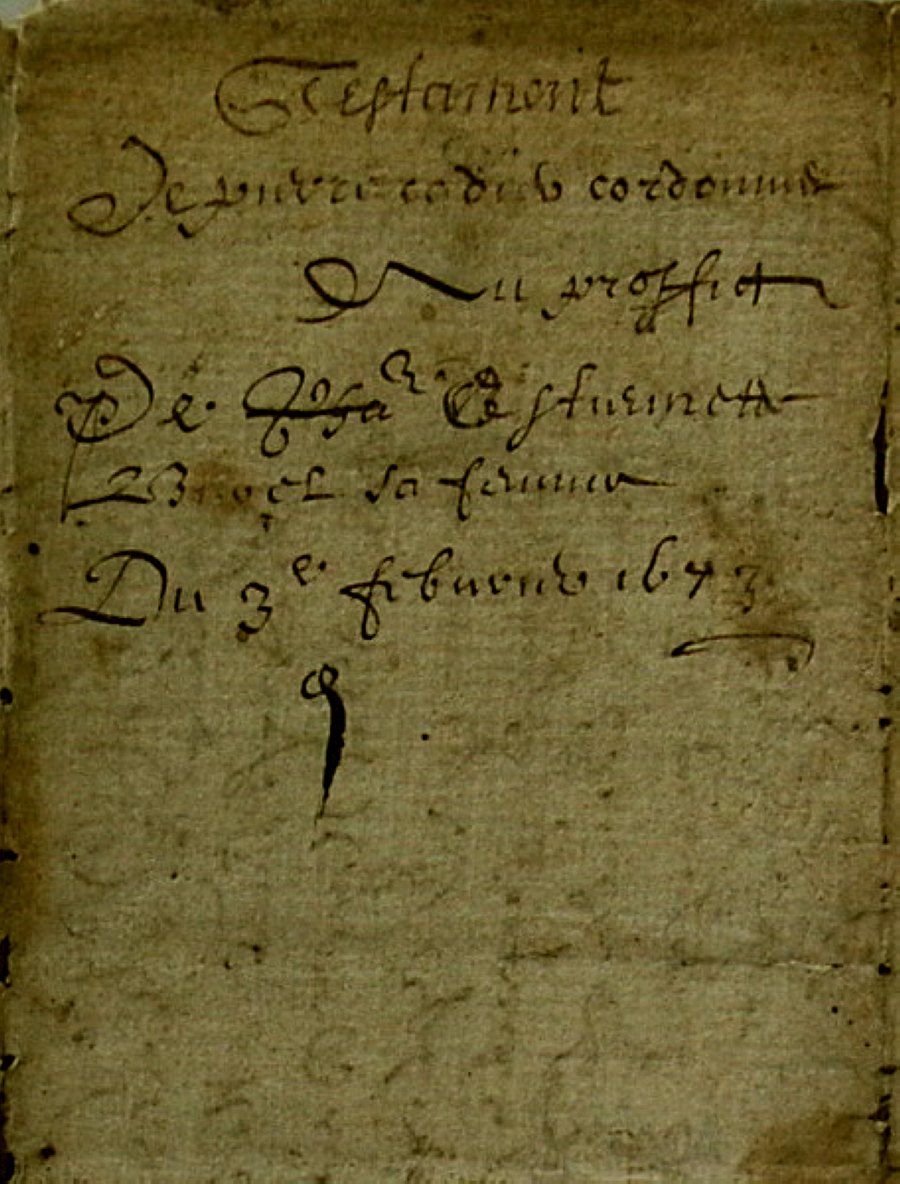 Testament
De pierre codier cordonnier
Au proffict
De Esturnette
sa femme
Du 3e febvrier 1673